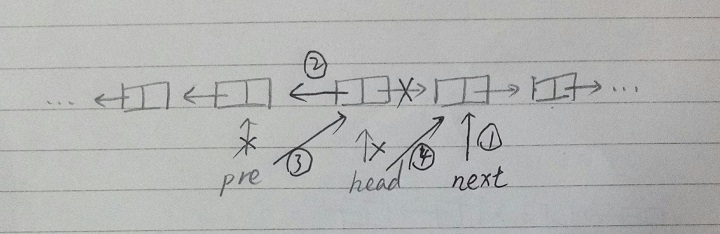 ②
... ...
③ ④ ①
pre head next